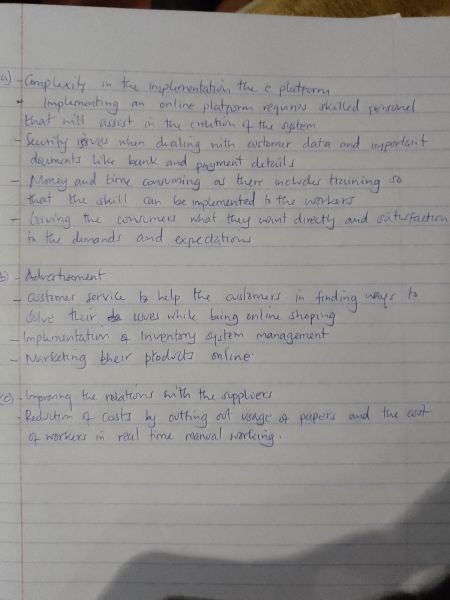 a) - Complexity in the implementation the e platform
- Implementing an online platform requires skilled personel
that will assist in the creation of the system
- Security issues when dealing with customer data and important
documents like bank and payment details
- Money and time consuming as there includes training so
that the skill can be implemented to the workers
- Giving the consumers what they want directly and satisfaction
to the demands and expectations
b) - Advertisement
- customer service to help the customers in finding ways to
solve their issues while being online shoping
- Implementation of Inventory system management
- Marketing their products online.
c) - Improving the relations with the suppliers
- Reduction of costs by cutting out usage of papers and the cost
of workers in real time manual working.